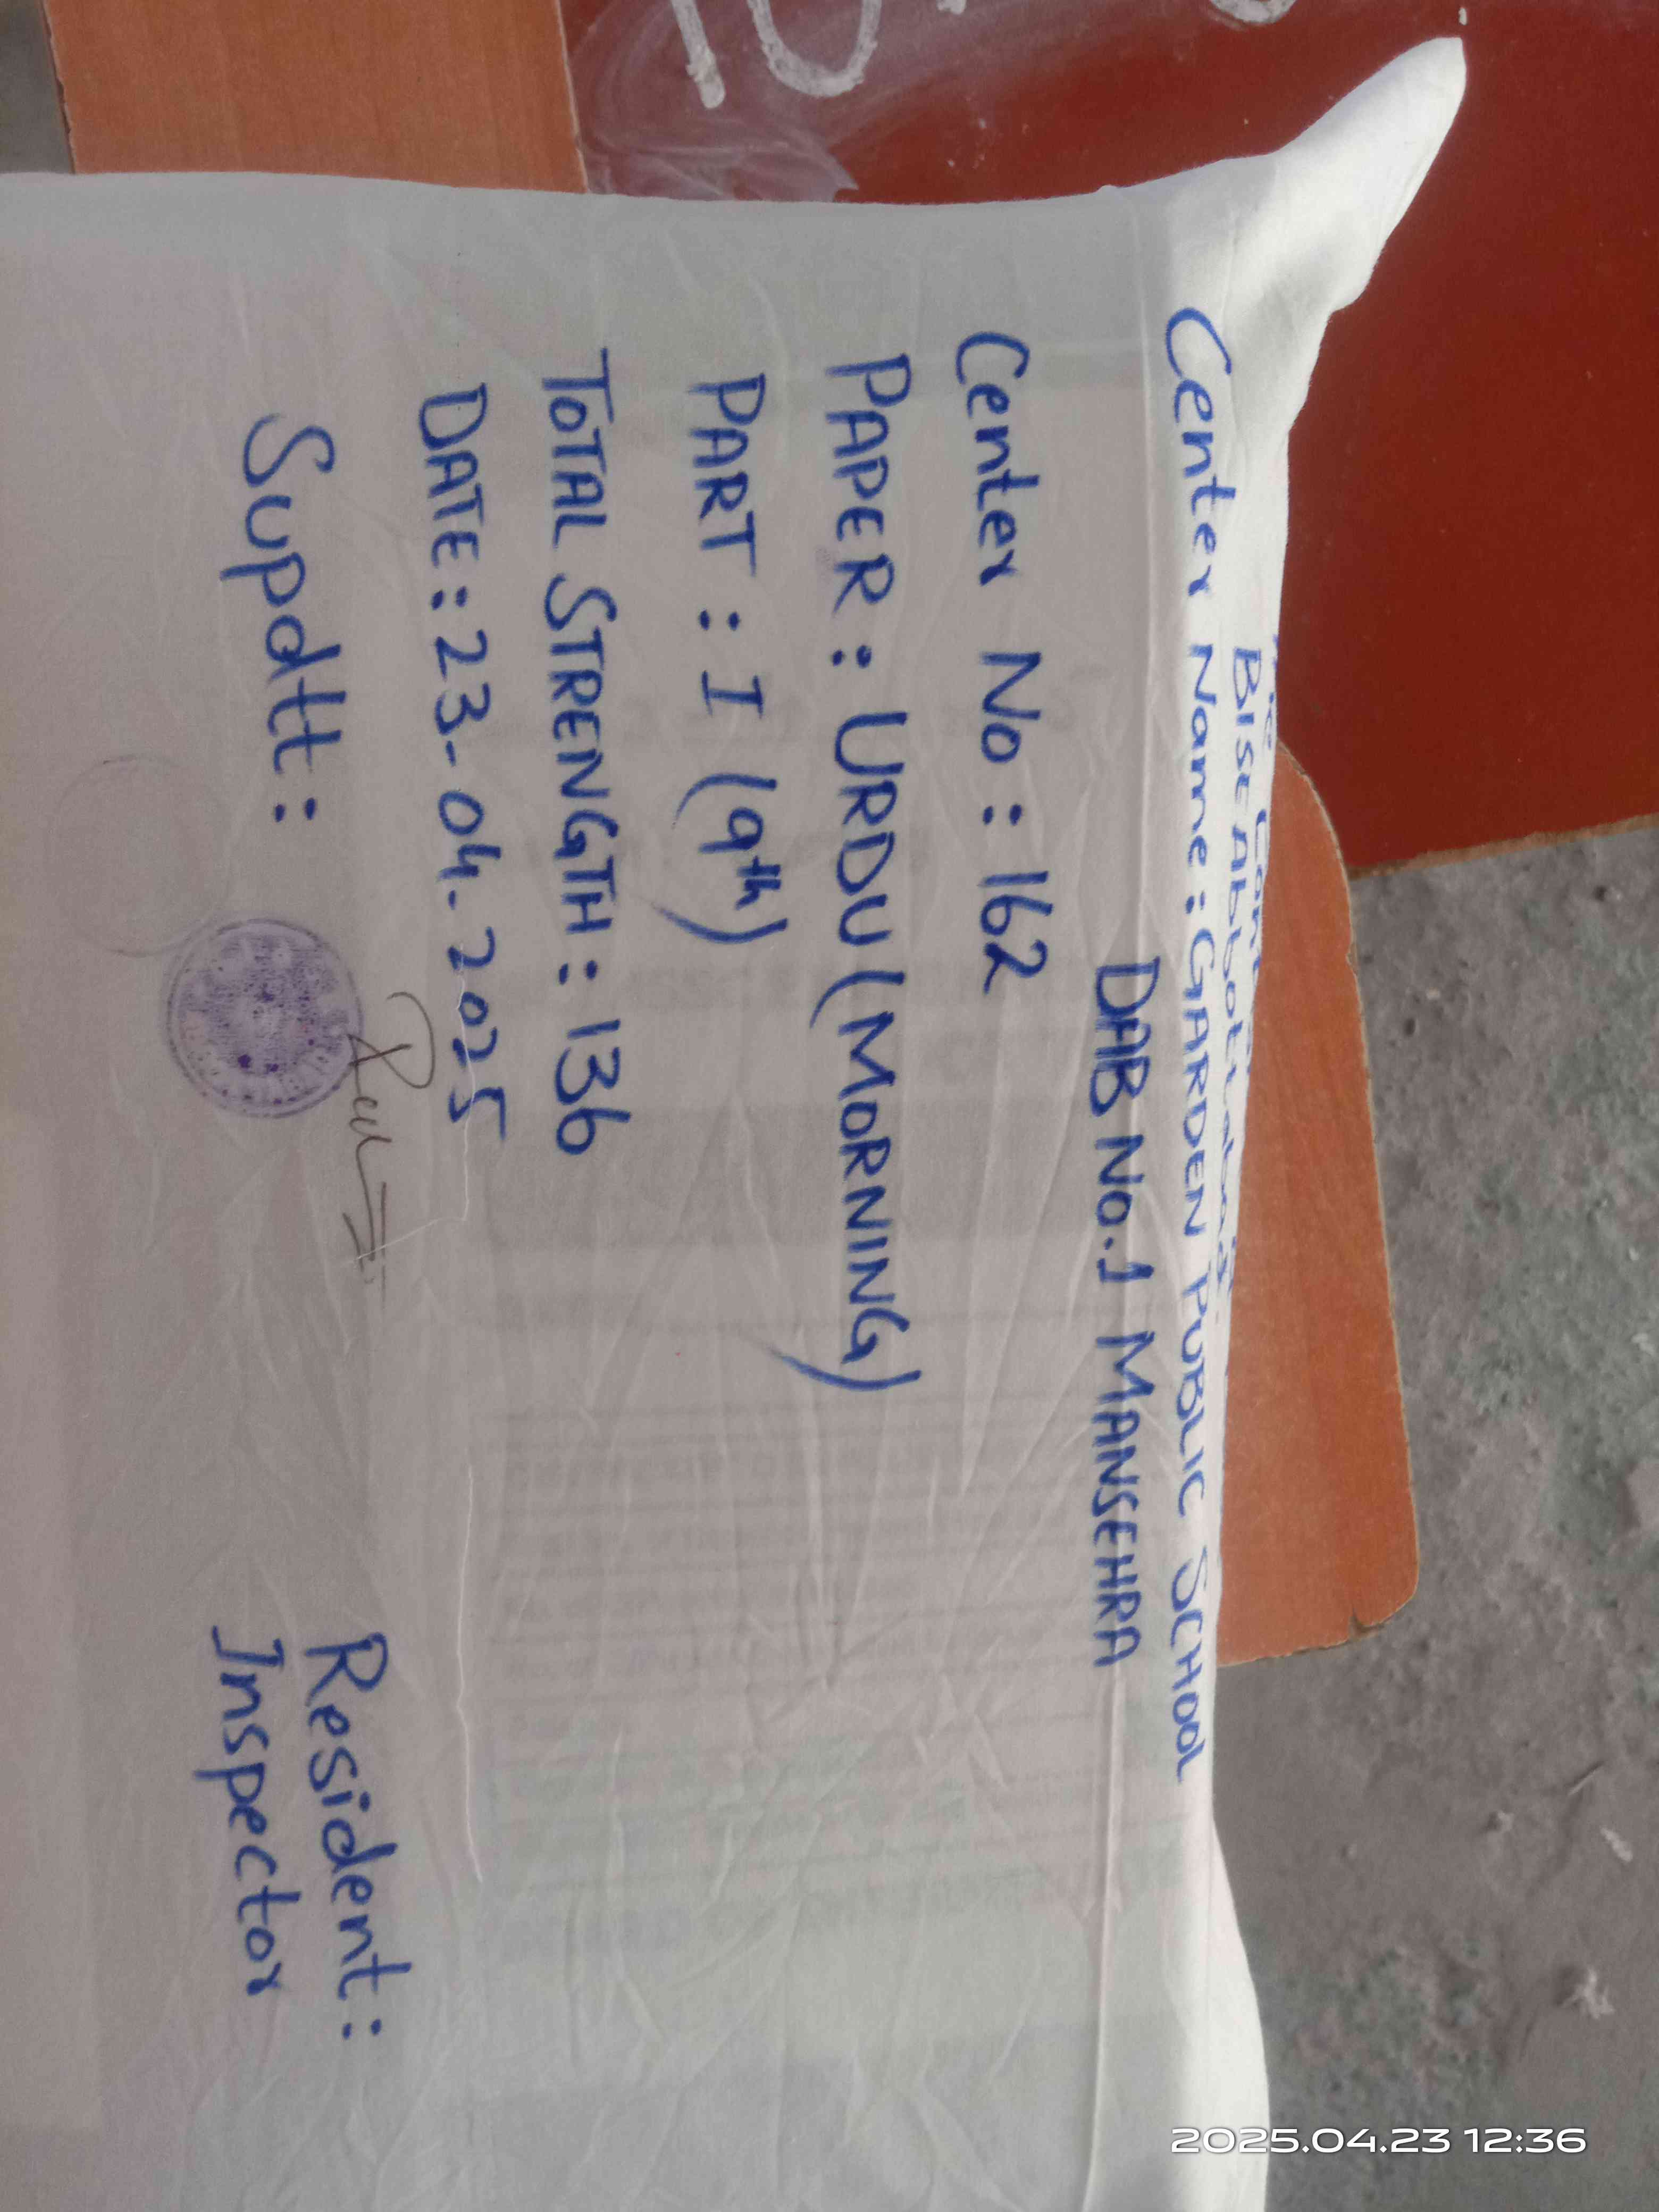 BISE Abbottabad
Center Name : GARDEN PUBLIC SCHOOL
DAB No.1 MANSEHRA
Center No : 162
PAPER : URDU (MORNING)
PART : I (9th)
TOTAL STRENGTH : 136
DATE : 23-04.2025
Supdtt :
Resident :
Inspector
2025.04.23 12:36